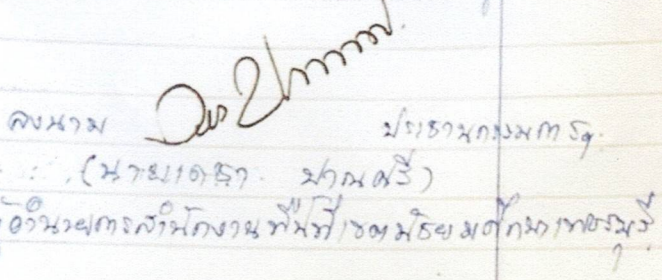 ลงนาม ประธานกรรมการฯ
(นายเดชา ปาณะศรี)
ผู้อำนวยการสำนักงานพื้นที่เขตมัธยมศึกษาเพชรบุรี